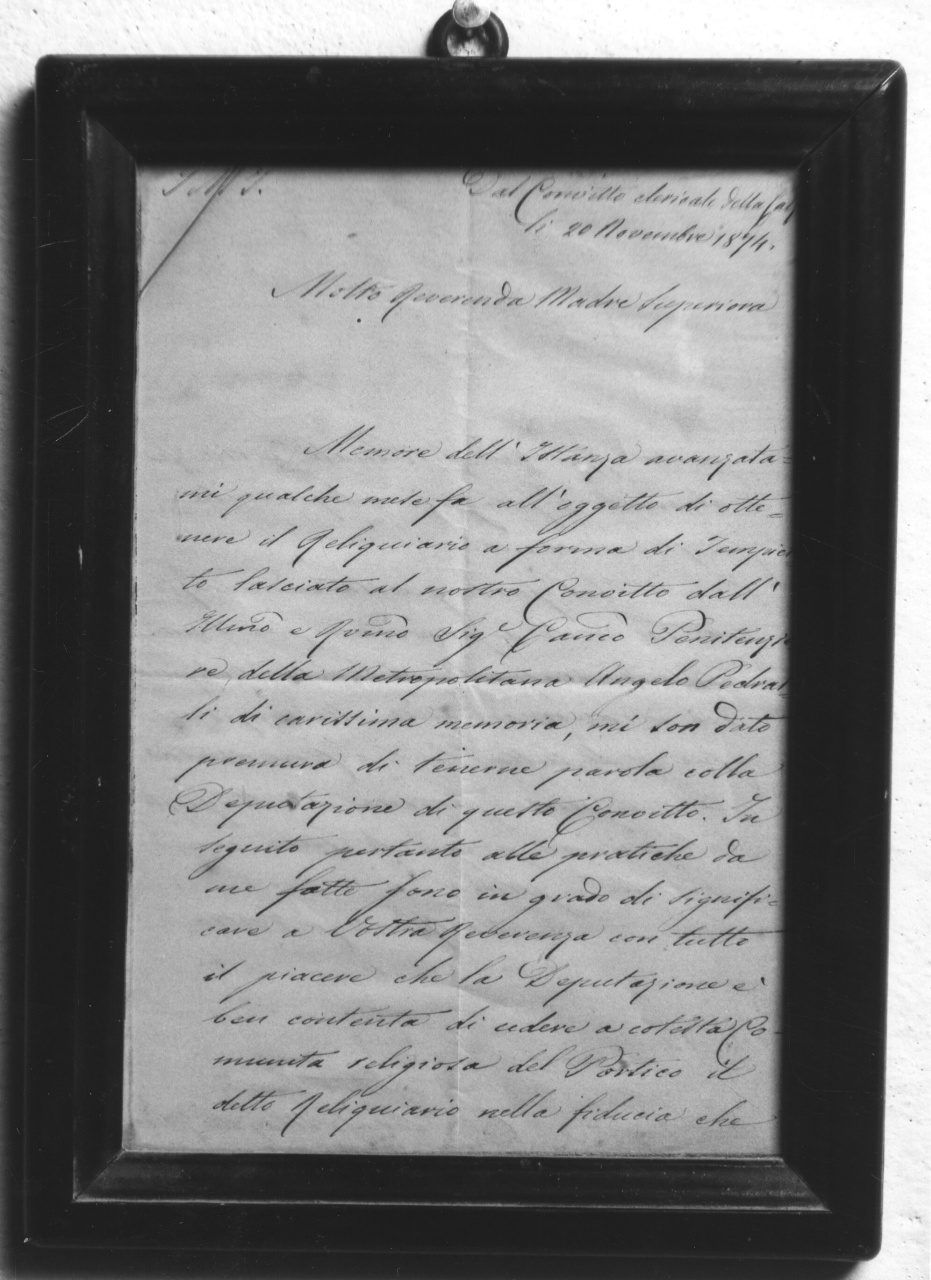 J. M. J.
Dal Convitto clericale della Cal
li 20 Novembre 1874.
Molto Reverenda Madre Superiora
Memore dell' Istanza avanzata=
mi qualche mese fa all'oggetto di otte=
nere il Reliquiario a forma di Tempiet
to lasciato al nostro Convitto dall'
Illmo e Revmo Sigr Canco Penitenzie
re della Metropolitana Angelo Pedral
li di carissima memoria, mi son dato
premura di tenerne parola colla
Deputazione di questo Convitto. In
seguito pertanto alle pratiche da
me fatte sono in grado di signifi=
care a Vostra Reverenza con tutto
il piacere che la Deputazione è
ben contenta di cedere a cotesta Co=
munita religiosa del Portico il
detto Reliquiario nella fiducia che